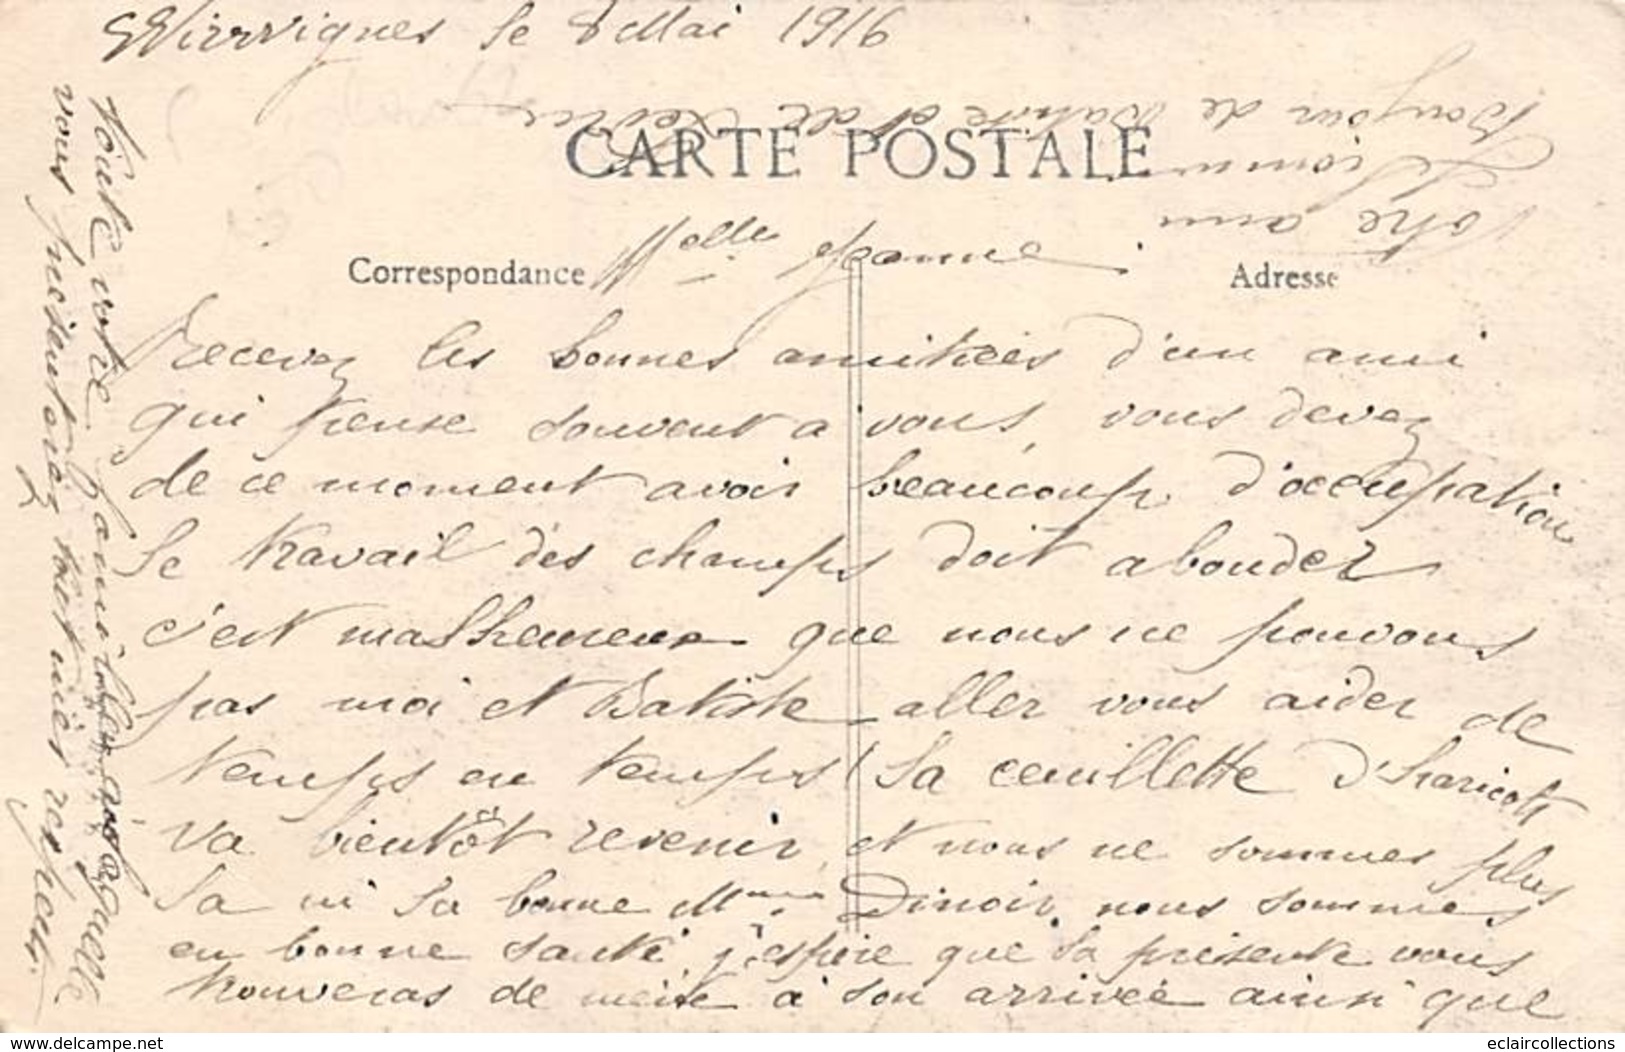 Wirwignes le 8 Mai 1916
CARTE POSTALE
Correspondance
Adresse
Melle Jeanne
Recevez les bonnes amitiées d'un ami
qui pense souvent a vous, vous devez
de ce moment avoir beaucoup d'occupation
le travail des champs doit abonder
c'est malheureux que nous ne pouvons
pas moi et Batiste aller vous aider de
temps en temps la ceuillette d'haricots
va bientôt revenir et nous ne sommes plus
la ni la bonne Mme Dinoir, nous sommes
en bonne santé, j'espère que la présente vous
trouveras de meme à son arrivée ainsi que
toute votre famille à laquelle
vous présenterez tout mes respects.
Bonjour de Batiste et de
Votre ami
www.delcampe.net
eclaircollections